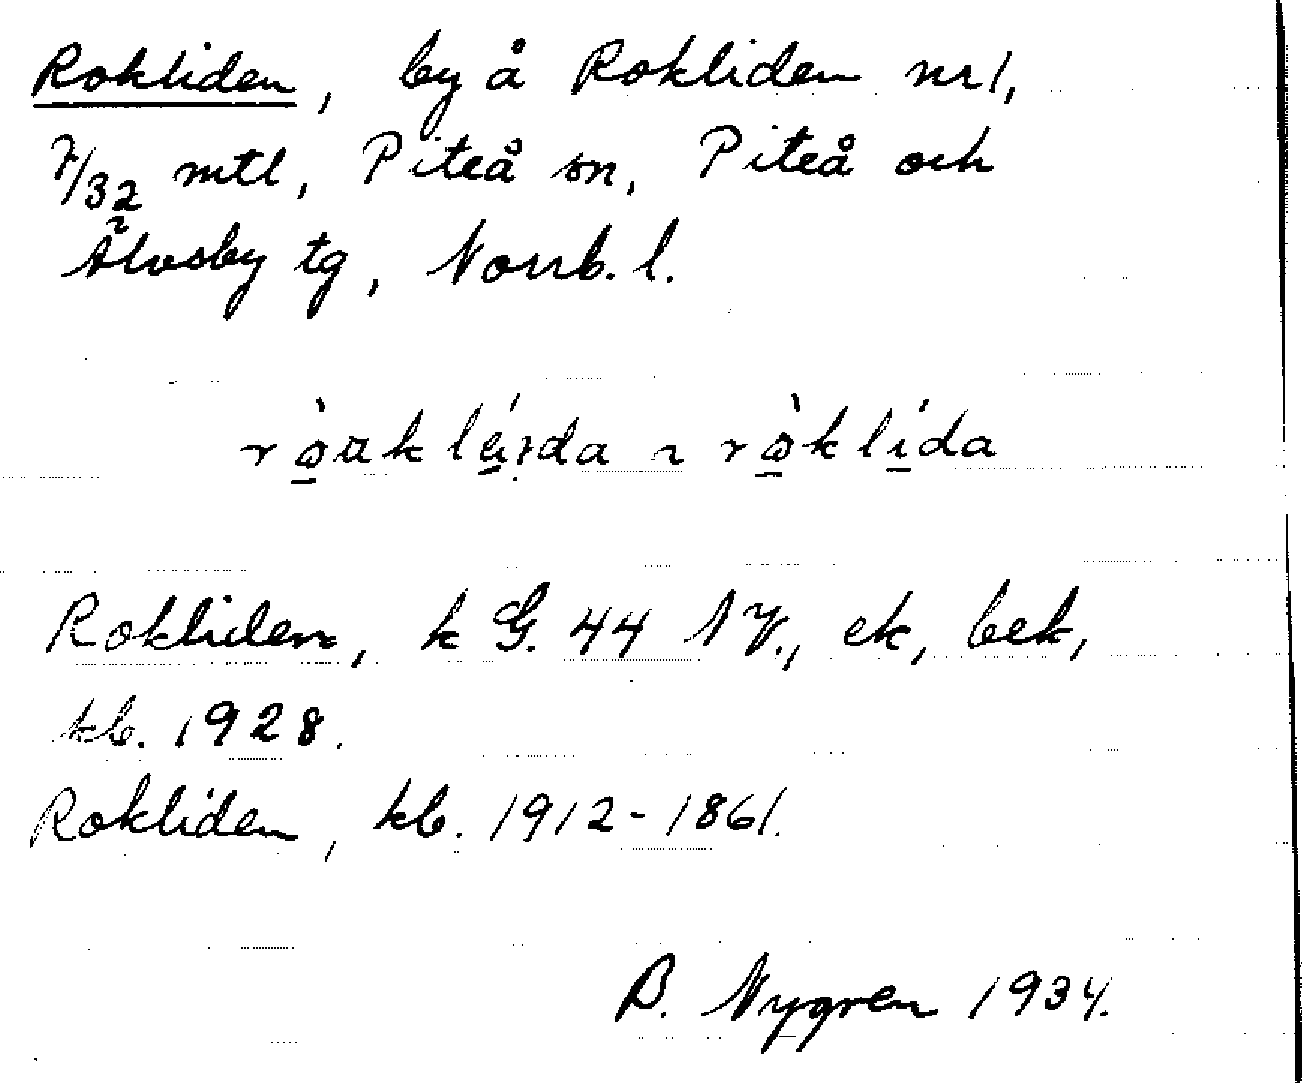 Rokliden, by å Rokliden nr 1,
7/32 mtl, Piteå sn, Piteå och
Älvsby tg, Norrb. l.
rò̱ɑklá̱ida ~ rò̱klí̱da
Rokliden, k G. 44 NV., ek, bek,
kb. 1928.
Rokliden, kb. 1912-1861.
B. Nygren 1934.